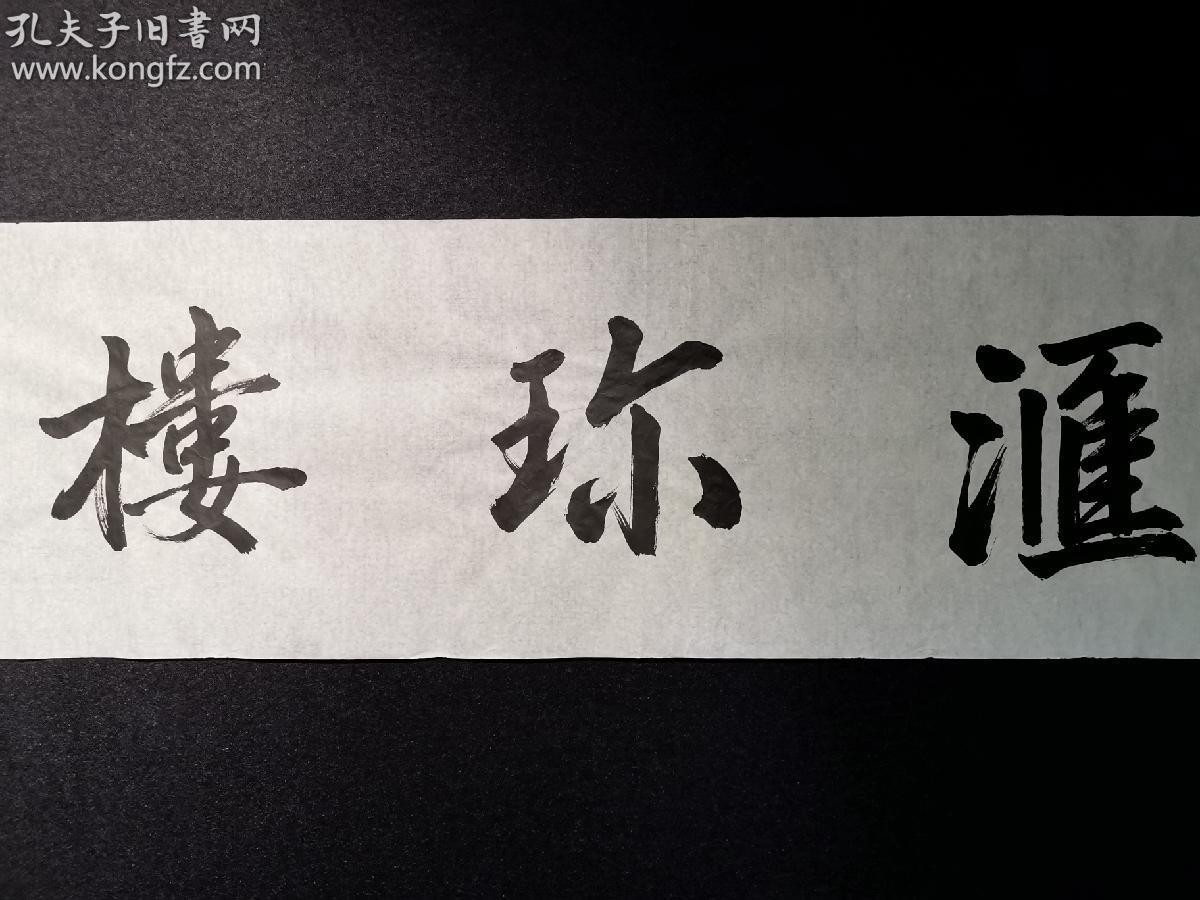 孔夫子旧書网
www.kongfz.com
滙珎樓